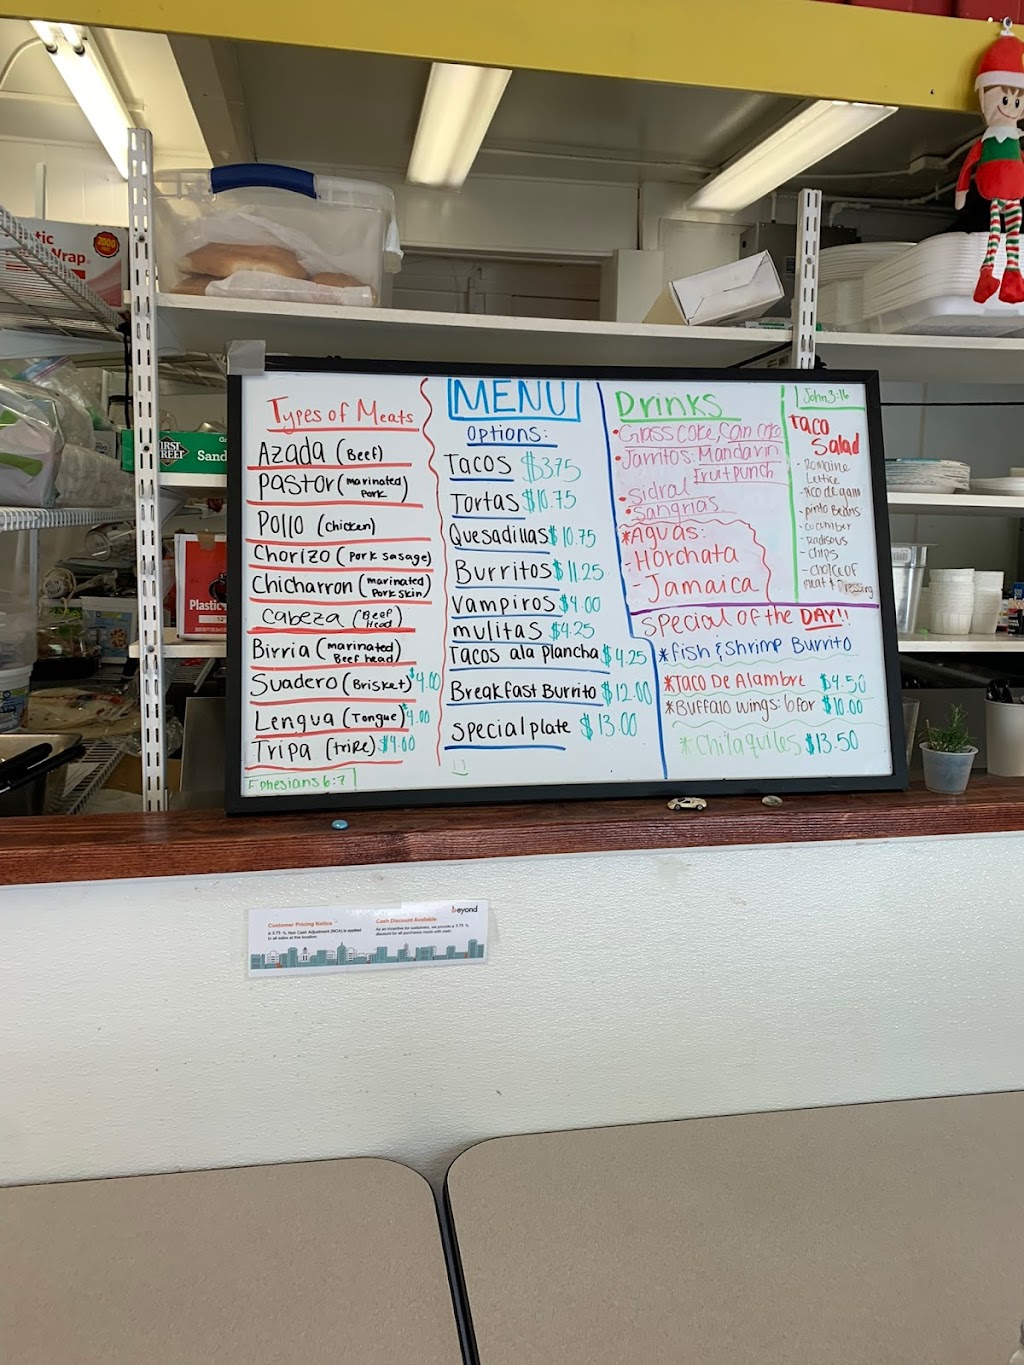 Types of Meats
Azada (Beef)
Pastor (marinated pork)
Pollo (chicken)
Chorizo (pork sasage)
Chicharron (marinated Pork skin)
Cabeza (Beef Head)
Birria (marinated Beef head)
Suadero (Brisket) $4.00
Lengua (Tongue) $4.00
Tripa (tripe) $4.00
Ephesians 6:7
MENU
Options:
Tacos $3.75
Tortas $10.75
Quesadillas $10.75
Burritos $11.25
Vampiros $4.00
mulitas $4.25
Tacos ala plancha $4.25
Breakfast Burrito $12.00
special plate $13.00
Drinks
Glass coke, Can coke
Jarritos: Mandarin
Fruit punch
Sidral
Sangrias
*Aguas:
- Horchata
- Jamaica
John 3:16
Taco
Salad
- Romaine
Lettice
- Pico de gallo
- pinto Beans
- cucumber
- Radisous
- Chips
- Choice of
meat & Dressing
Special of the DAY!!
*fish & shrimp Burrito
*Taco De Alambre $4.50
*Buffalo wings: 6 for $10.00
*Chilaquiles $13.50
2000
Wrap
FIRST
STREET
Sand
Plastic
beyond
Customer Pricing Notice
A 3.75 % Non Cash Adjustment (NCA) is applied
to all sales at this location.
Cash Discount Available
As an incentive for customers, we provide a 3.75 %
discount for all purchases made with cash.